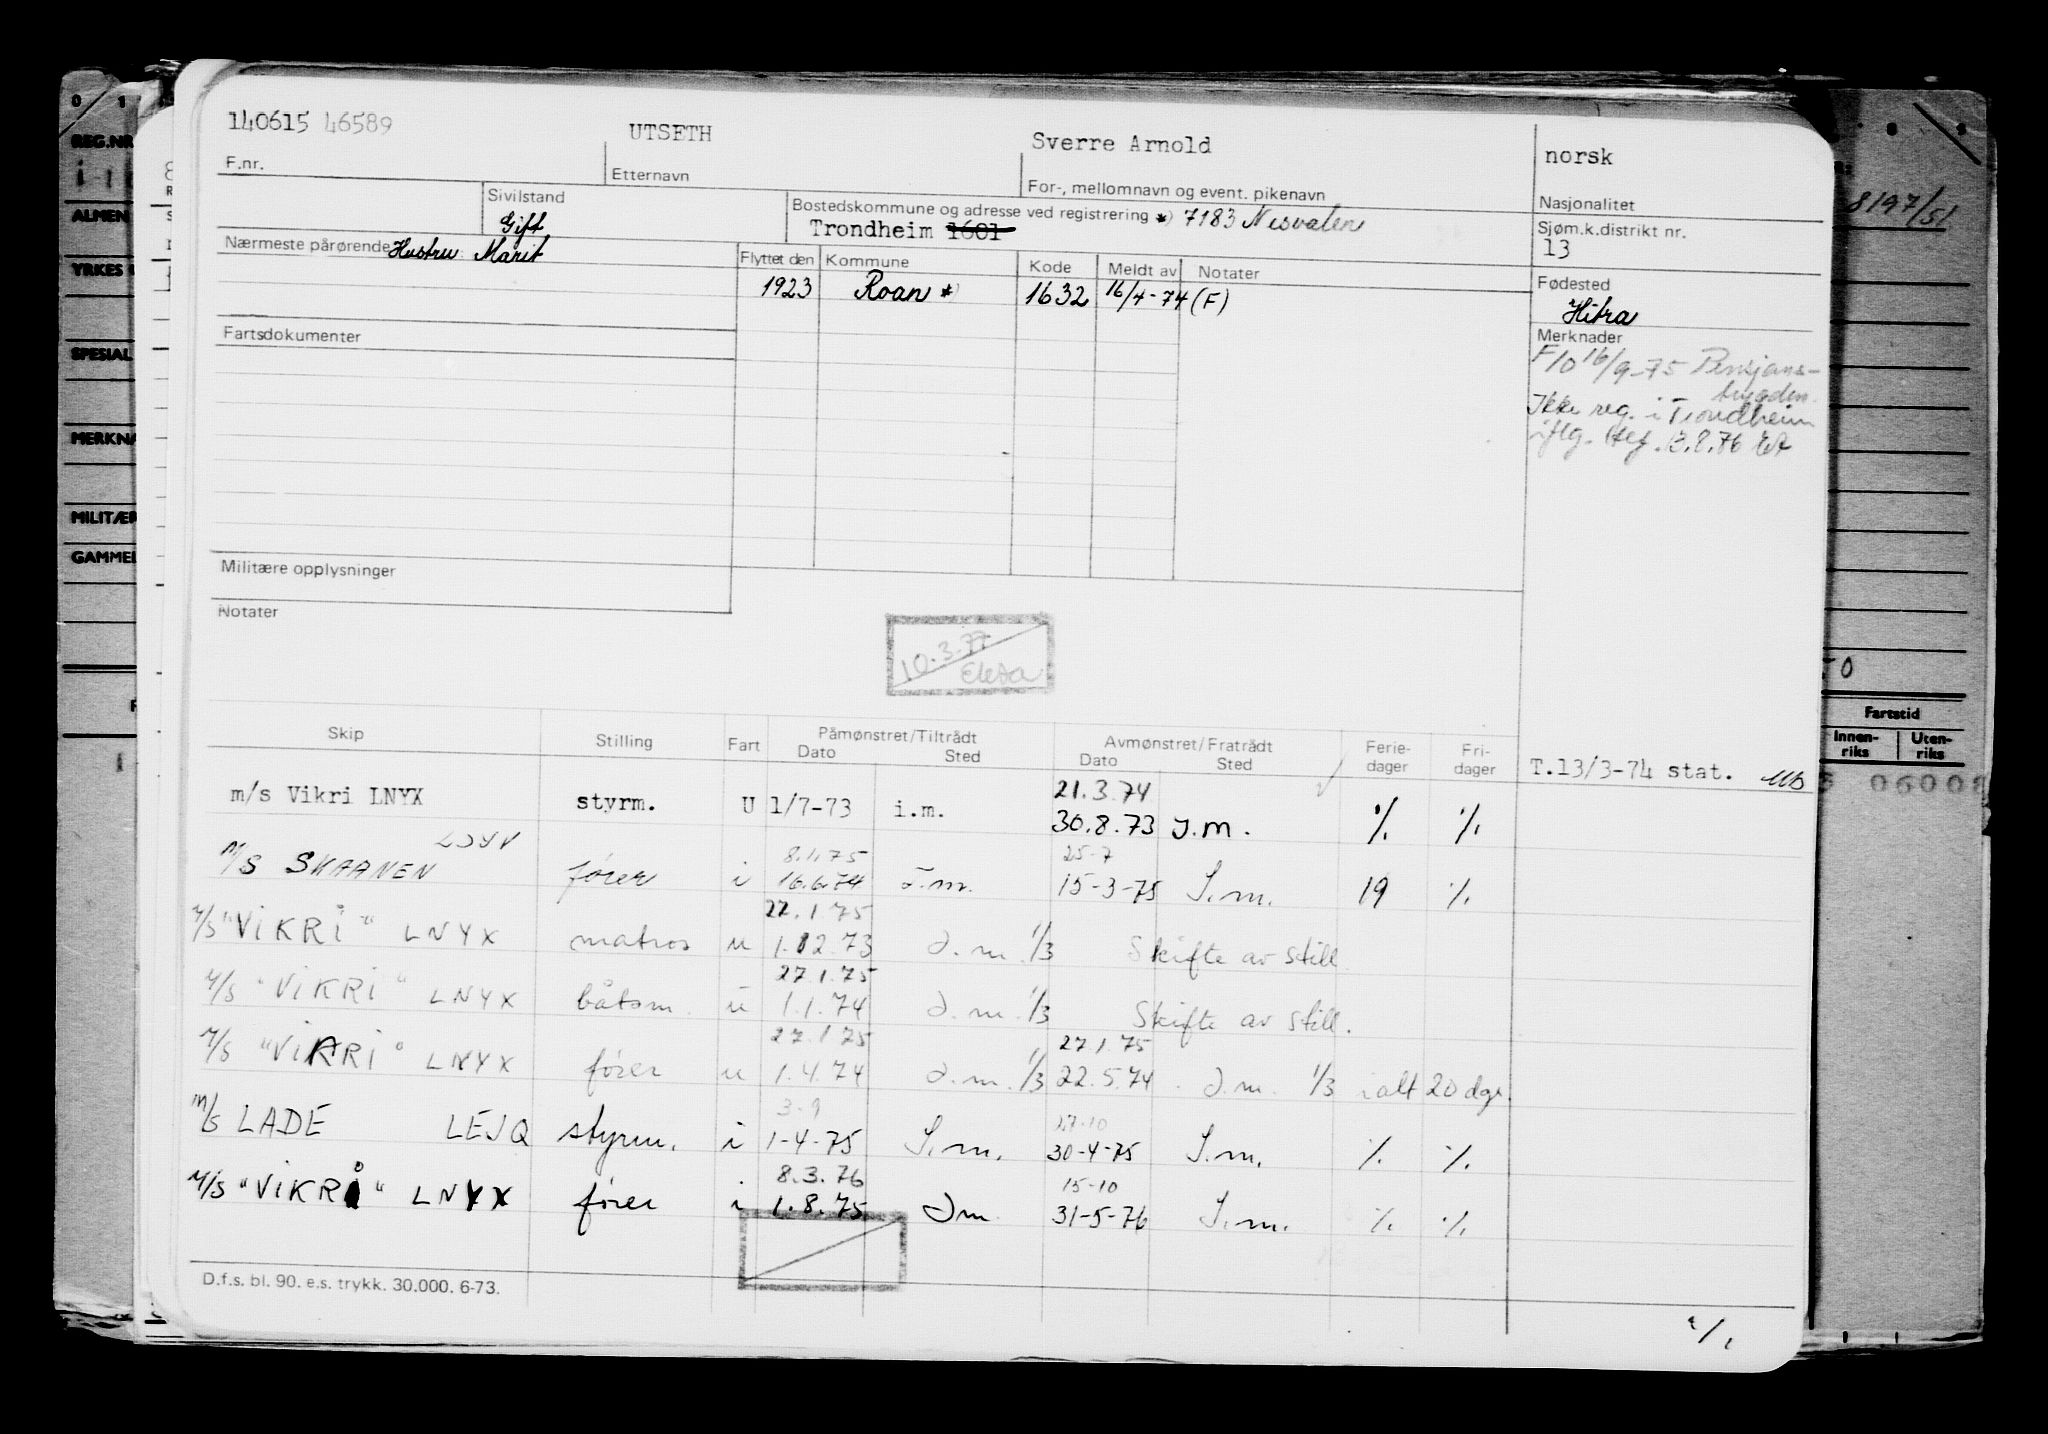 140615 46589 UTSETH Sverre Arnold norsk
F.nr. Etternavn For-, mellomnavn og event. pikenavn Nasjonalitet
Sivilstand Gift
Bostedskommune og adresse ved registrering *) 7183 Nesvalen
Trondheim 1601
Sjøm.k.distrikt nr.
13
Nærmeste pårørende Hustru Marit
Flyttet den Kommune Kode Meldt av Notater
1923 Roan *) 1632 16/4-74 (F)
Fødested
Hitra
Fartsdokumenter
Merknader
F/O 16/9-75 Pensjons-
trygden.
Ikke reg. i Trondheim
iflg.
Militære opplysninger
Notater
10.3.77
Skip Stilling Fart Påmønstret/Tiltrådt Dato Sted Avmønstret/Fratrådt Dato Sted Ferie-dager Fri-dager
T.13/3-74 stat.
21.3.74
m/s Vikri LNYX styrm. U 1/7-73 i.m. 30.8.73 I.m. % %
LJYV 8.1.75 25-7
M/S SKAANEN fører i 16.6.74 I.m. 15-3-75 I.m. 19 %
27.1.75
M/S "VIKRI" LNYX matros u 1.12.73 I.m. 1/3 Skifte av still.
27.1.75
M/S "VIKRI" LNYX båtsm. u 1.1.74 I.m. 1/3 Skifte av still.
27.1.75 27.1.75
M/S "VIKRI" LNYX fører u 1.4.74 I.m. 1/3 22.5.74 I.m. 1/3 ialt 20 dgr.
3-9 27-10
M/S LADE LEJQ styrm. i 1-4-75 I.m. 30-4-75 I.m. % %
8.3.76 15-10
M/S "VIKRI" LNYX fører i 1.8.75 Im 31-5-76 I.m. % %
D.f.s. bl. 90. e.s. trykk. 30.000. 6-73.
REG.NR
ALMEN
YRKES
SPESIAL
MERKNA
MILITÆR
GAMMEL
8197/51
Fartstid
Innen-riks Uten-riks